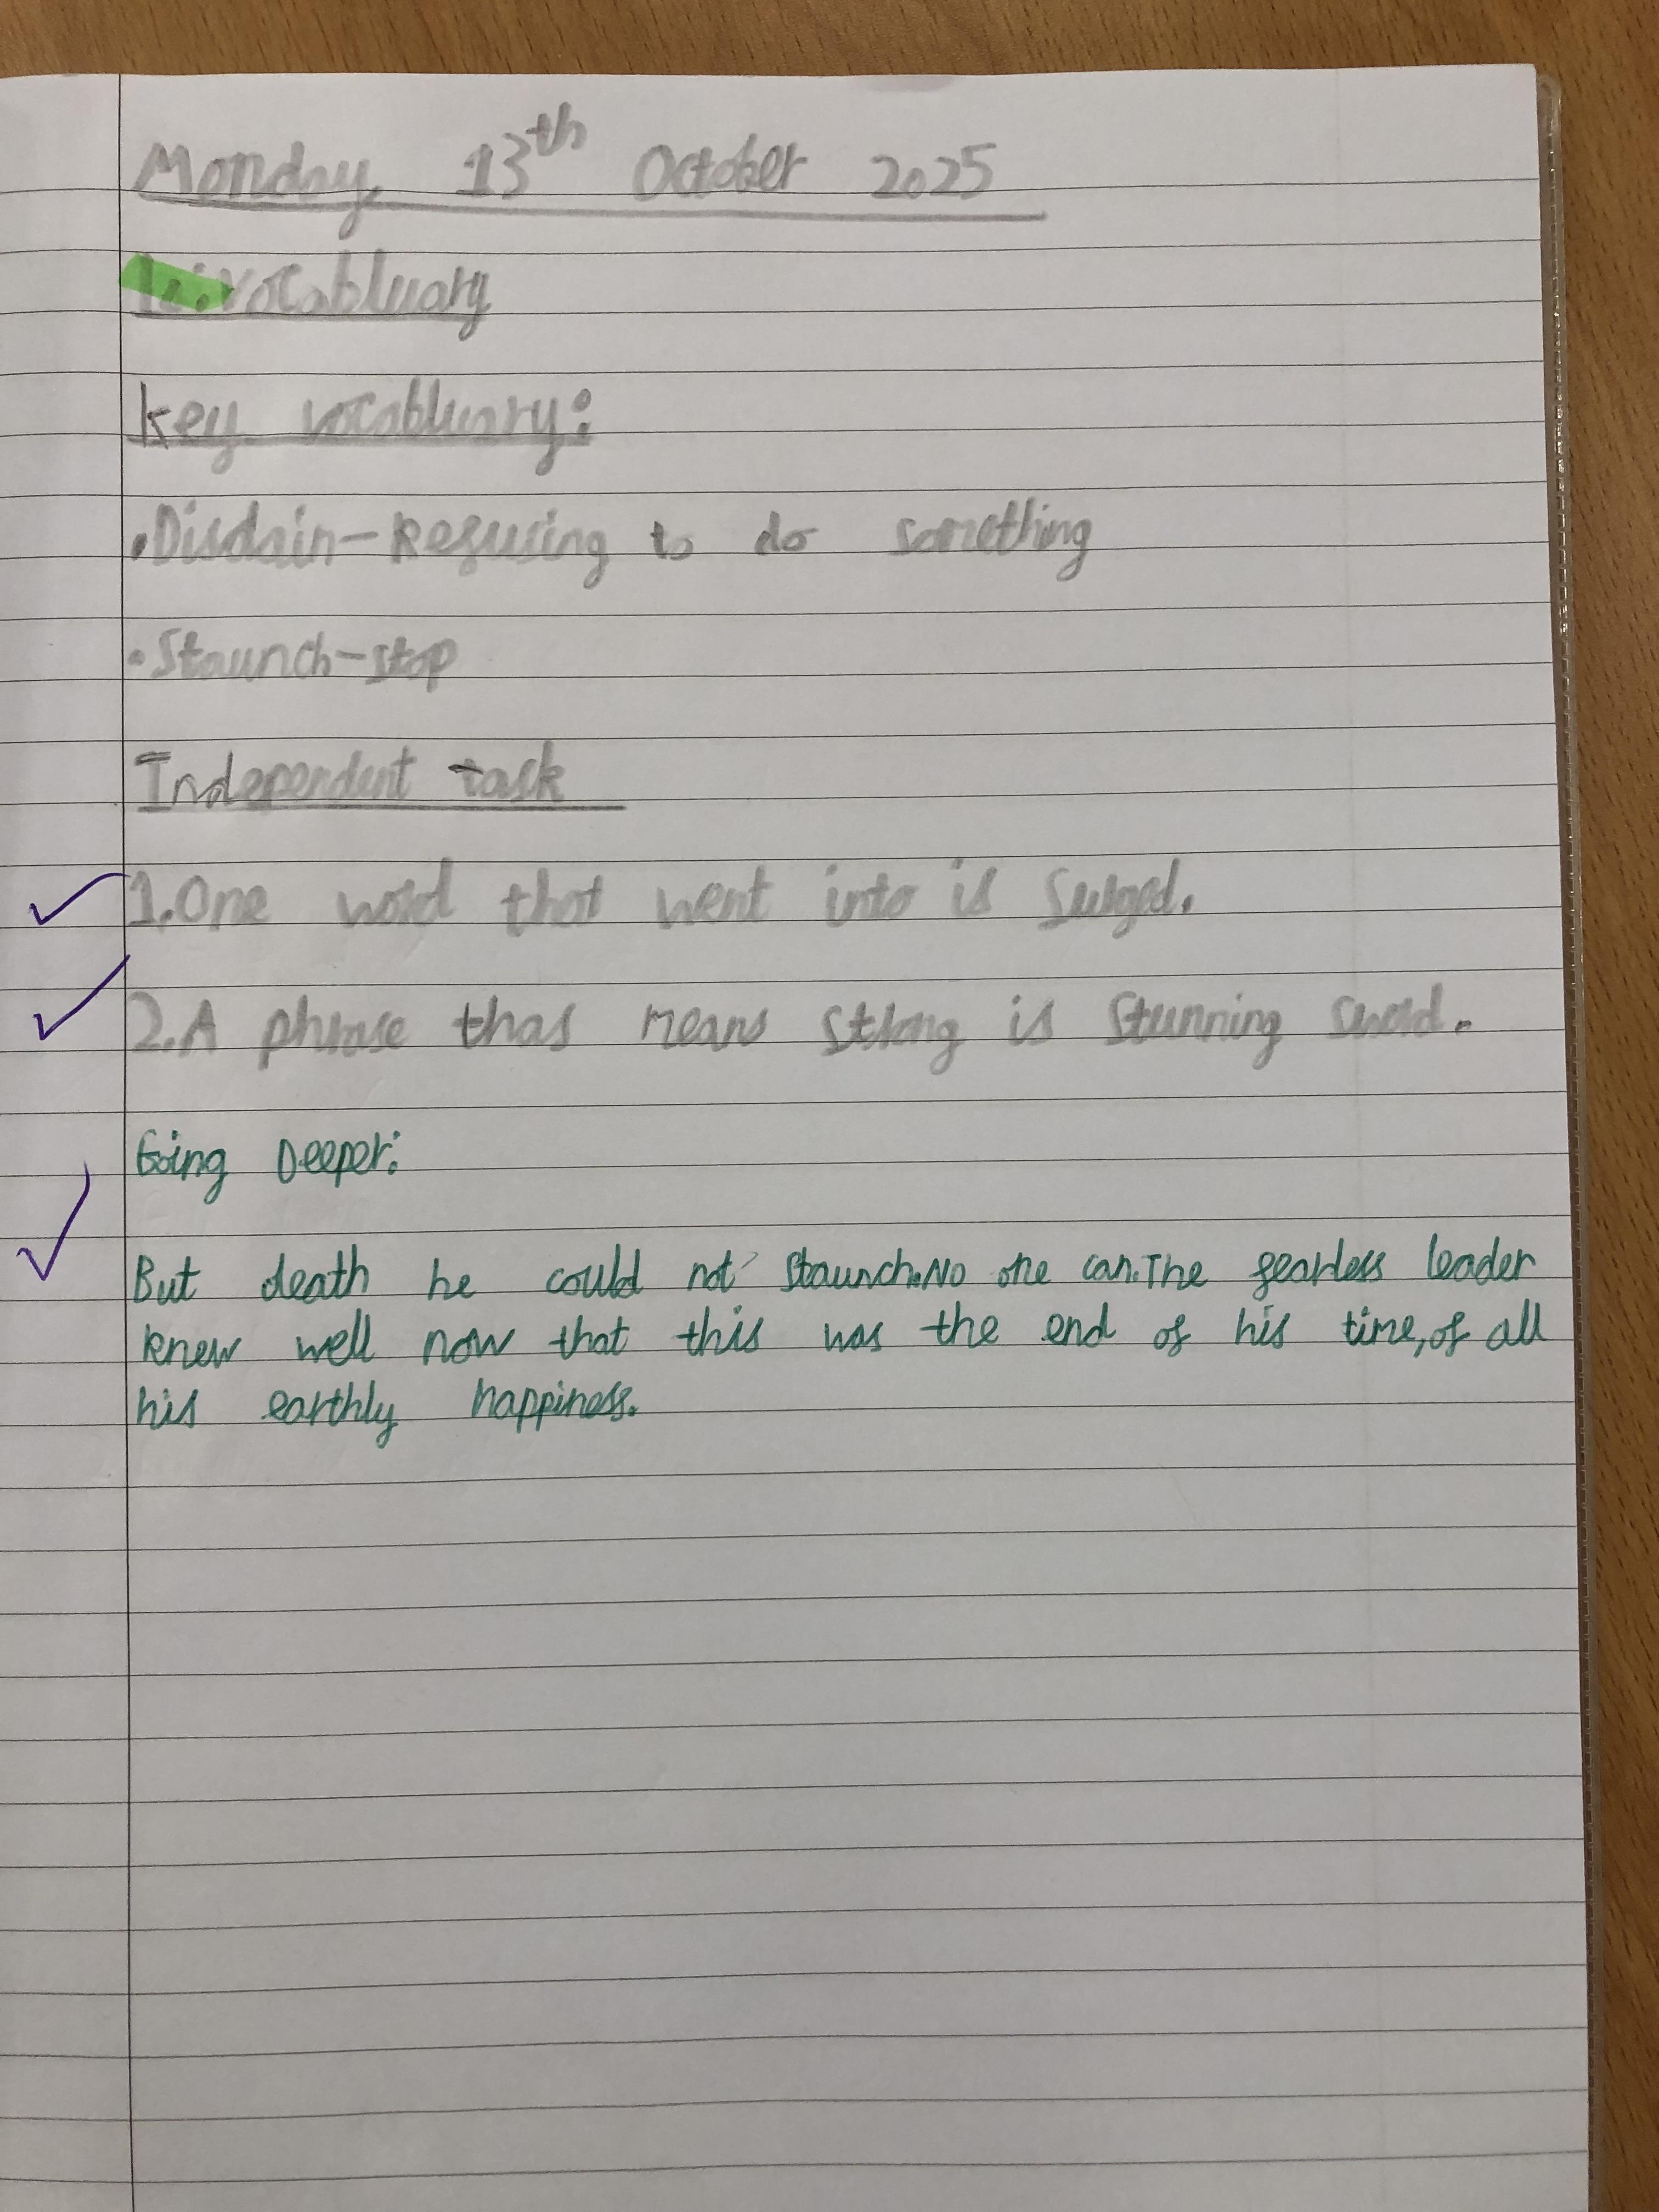 Monday 13th October 2025
L.I: vocabluary
Key vocabluary:
•Disdain-Refusing to do something
•Staunch-stop
Independent task
1.One word that went into is surged.
2.A phrase thas means strong is stunning sword.
Going Deeper:
But death he could not staunch.No one can.The fearless leader
knew well now that this was the end of his time,of all
his earthly happiness.